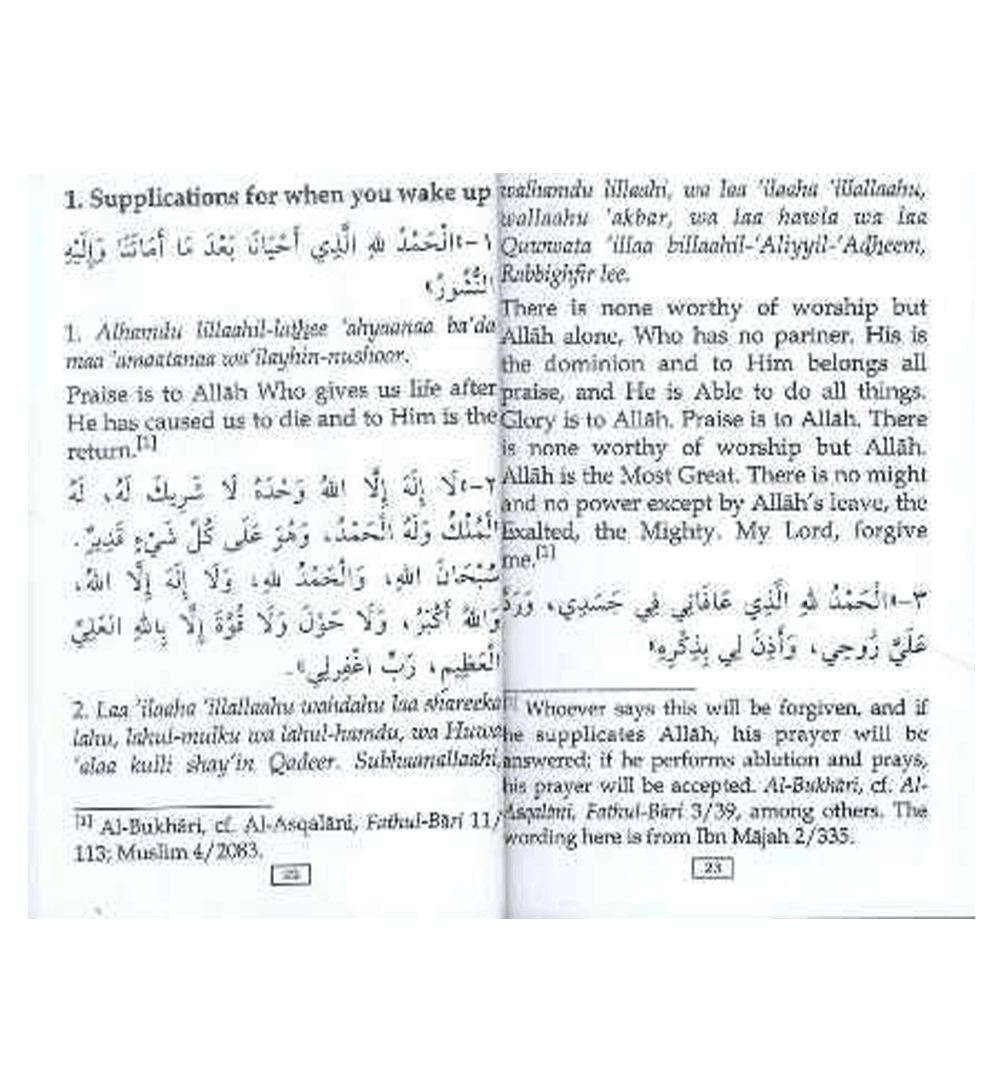 1. Supplications for when you wake up
١-«الْحَمْدُ للهِ الَّذِي أَحْيَانَا بَعْدَ مَا أَمَاتَنَا وَإِلَيْهِ
النُّشُورُ»
1. Alhamdu lillaahil-lathee 'ahyaanaa ba'da
maa 'amaatanaa wa'ilayhin-nushoor.
Praise is to Allāh Who gives us life after
He has caused us to die and to Him is the
return.[1]
٢-«لَا إِلَهَ إِلَّا اللهُ وَحْدَهُ لَا شَرِيكَ لَهُ، لَهُ
الْمُلْكُ وَلَهُ الْحَمْدُ، وَهُوَ عَلَى كُلِّ شَيْءٍ قَدِيرٌ.
سُبْحَانَ اللهِ، وَالْحَمْدُ للهِ، وَلَا إِلَهَ إِلَّا اللهُ،
وَاللهُ أَكْبَرُ، وَلَا حَوْلَ وَلَا قُوَّةَ إِلَّا بِاللهِ الْعَلِيِّ
الْعَظِيمِ، رَبِّ اغْفِرلِي».
2. Laa 'ilaaha 'illallaahu wahdahu laa shareeka
lahu, lahul-mulku wa lahul-hamdu, wa Huwa
'alaa kulli shay'in Qadeer. Subhaanallaahi,
[1] Al-Bukhāri, cf. Al-Asqalāni, Fathul-Bāri 11/
113; Muslim 4/2083.
22
walhamdu lillaahi, wa laa 'ilaaha 'illallaahu,
wallaahu 'akbar, wa laa hawla wa laa
Quwwata 'illaa billaahil-'Aliyyil-'Adheem,
Rabbighfir lee.
There is none worthy of worship but
Allāh alone, Who has no partner. His is
the dominion and to Him belongs all
praise, and He is Able to do all things.
Glory is to Allāh. Praise is to Allāh. There
is none worthy of worship but Allāh.
Allāh is the Most Great. There is no might
and no power except by Allāh's leave, the
Exalted, the Mighty. My Lord, forgive
me.[1]
٣-«الْحَمْدُ للهِ الَّذِي عَافَانِي فِي جَسَدِي، وَرَدَّ
عَلَيَّ رُوحِي، وَأَذِنَ لِي بِذِكْرِهِ»
[1] Whoever says this will be forgiven, and if
he supplicates Allāh, his prayer will be
answered; if he performs ablution and prays,
his prayer will be accepted. Al-Bukhāri, cf. Al-
Asqalāni, Fathul-Bāri 3/39, among others. The
wording here is from Ibn Mājah 2/335.
23